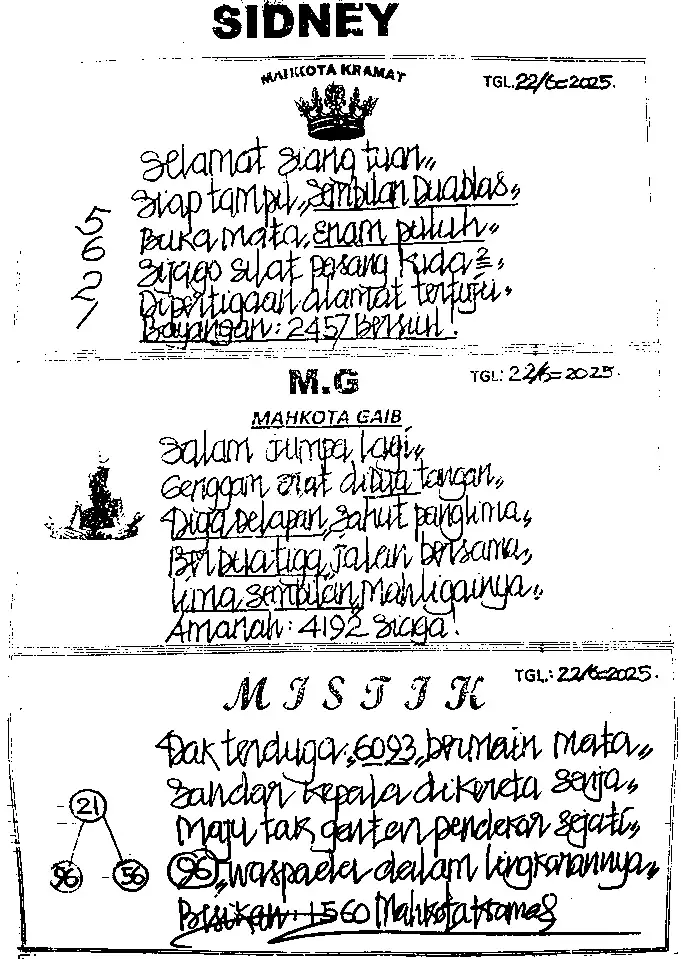 SIDNEY
MAHKOTA KRAMAT
TGL. 22/6=2025.
Selamat siang tuan,,
Siap tampil,, Sembilan Duablas,,
Buka mata, enam puluh,,
Sijago silat pasang kuda2,,
Dipertigaan alamat tertuju.
Bayangan: 2457 Bersuh!
5
6
2
7
M.G
TGL: 22/6=2025.
MAHKOTA GAIB
Salam jumpa lagi,,
Genggam erat didua tangan,,
Diga Delapan, Sahut panglima,,
Ber Dua tiga, jalan bersama,,
Lima Sembilan, Mahligainya,,
Amanah: 4192 Siaga!
MISTIK
TGL: 22/6=2025.
Dak terduga,, 6093, bermain mata,,
Sandar kepala dikereta senja,,
Maju tak gentar pendekar sejati,,
96,, waspada dalam lingkarannya,,
Bisikan: 1560 Mahkota
21
96 56